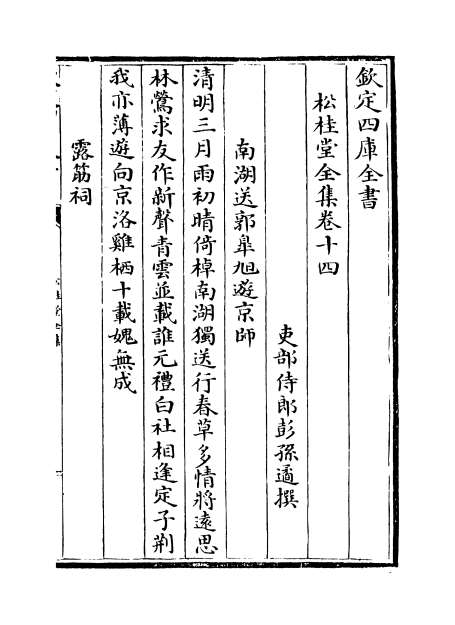 欽定四庫全書
松桂堂全集卷十四
吏部侍郎彭孫遹撰
南湖送郭臯旭遊京師
清明三月雨初晴倚棹南湖獨送行春草多情將遠思
林鶯求友作新聲青雲並載誰元禮白社相逢定子荆
我亦薄遊向京洛雞栖十載媿無成
露筋祠